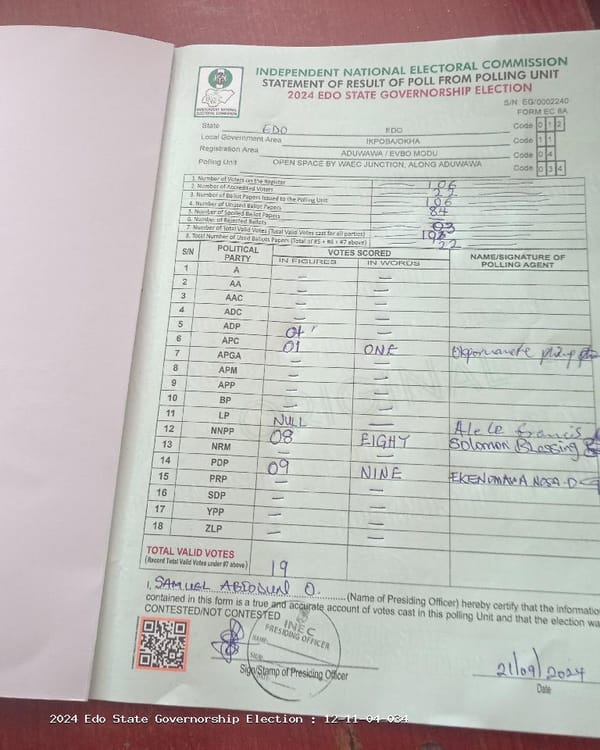 INDEPENDENT NATIONAL ELECTORAL COMMISSION
STATEMENT OF RESULT OF POLL FROM POLLING UNIT
2024 EDO STATE GOVERNORSHIP ELECTION
S/N: EG/0002240
FORM EC 8A
INDEPENDENT NATIONAL ELECTORAL COMMISSION
State EDO EDO Code 0 1 2
Local Government Area IKPOBA/OKHA Code 1 1
Registration Area ADUWAWA / EVBO MODU Code 0 4
Polling Unit OPEN SPACE BY WAEC JUNCTION, ALONG ADUWAWA Code 0 3 4
1. Number of Voters on the Register 106
2. Number of Accredited Voters 22
3. Number of Ballot Papers Issued to the Polling Unit 106
4. Number of Unused Ballot Papers 84
5. Number of Spoiled Ballot Papers
6. Number of Rejected Ballots 03
7. Number of Total Valid Votes (Total Valid Votes cast for all parties)
8. Total Number of Used Ballot Papers (Total of #5 + #6 + #7 above) 22
S/N POLITICAL PARTY VOTES SCORED NAME/SIGNATURE OF POLLING AGENT
IN FIGURES IN WORDS
1 A — —
2 AA — —
3 AAC — —
4 ADC — —
5 ADP — —
6 APC 01
7 APGA 01 ONE
8 APM — —
9 APP — —
10 BP — —
11 LP — —
12 NNPP NULL — Alele Francis
13 NRM 08 EIGHT Solomon Blessing
14 PDP — —
15 PRP 09 NINE EKENOMAWA NOSA-D
16 SDP — —
17 YPP — —
18 ZLP — —
TOTAL VALID VOTES
(Record Total Valid Votes under #7 above) 19
I, SAMUEL ABIODUN O. (Name of Presiding Officer) hereby certify that the information
contained in this form is a true and accurate account of votes cast in this polling Unit and that the election wa
CONTESTED/NOT CONTESTED
INEC
PRESIDING OFFICER
NAME:
SIGN:
Sign/Stamp of Presiding Officer
21/09/2024
Date
ORIGINAL
2024 Edo State Governorship Election : 12-11-04-034